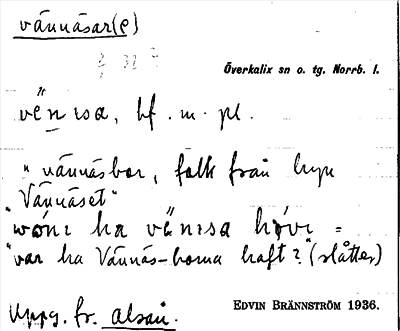 vännäsar(e)
Överkalix sn o. tg. Norrb. l.
vẹnɪsa, bf. m. pl.
"vännäsbor, folk från byn
Vännäset"
"wónɪ ha vänɪsa hǿvɪ =
"var ha Vännäs-borna haft?" (slåtter)
Uppg. fr. alsån.
EDVIN BRÄNNSTRÖM 1936.